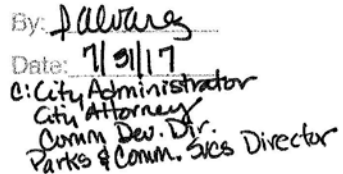 By: Jalvarez
Date: 7/31/17
C: City Administrator
City Attorney
Comm Dev. Dir.
Parks & Comm. Svcs Director